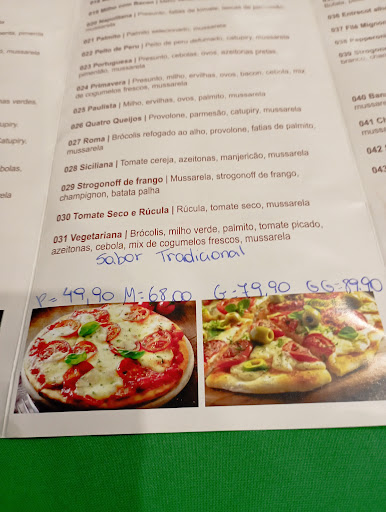 019 Milho com Bacon |
020 Napolitana | Presunto, fatias de tomate,
021 Palmito | Palmito selecionado, mussarela
022 Peito de Peru | Peito de peru defumado, catupiry, mussarela
023 Portuguesa | Presunto, cebolas, ovos, azeitonas pretas,
pimentão, mussarela
024 Primavera | Presunto, milho, ervilhas, ovos, bacon, calabresa, mix
de cogumelos frescos, mussarela
025 Paulista | Milho, ervilhas, ovos, palmito, mussarela
026 Quatro Queijos | Provolone, parmesão, catupiry, mussarela
027 Roma | Brócolis refogado ao alho, provolone, fatias de palmito,
mussarela
028 Siciliana | Tomate cereja, azeitonas, manjericão, mussarela
029 Strogonoff de frango | Mussarela, strogonoff de frango,
champignon, batata palha
030 Tomate Seco e Rúcula | Rúcula, tomate seco, mussarela
031 Vegetariana | Brócolis, milho verde, palmito, tomate picado,
azeitonas, cebola, mix de cogumelos frescos, mussarela
Sabor Tradicional
P= 49,90 M=68,00 G=79,90 GG=89,90
mussarela
as verdes,
atupiry,
bolas,
036
037 Filé Mignon
038 Pepperoni
039 Strogonoff
branco, cham
040 Bana
041 Ch
042
043